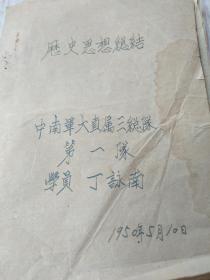 歷史思想總結
中南軍大直屬三總隊
第一隊
學員 丁詠南
1950年5月10日